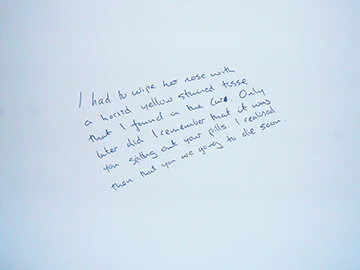 I had to wipe her nose with
a horrid yellow stained tissue
that I found in the car. Only
later did I remember that it was
you spitting out your pills. I realised
then that you are going to die soon.